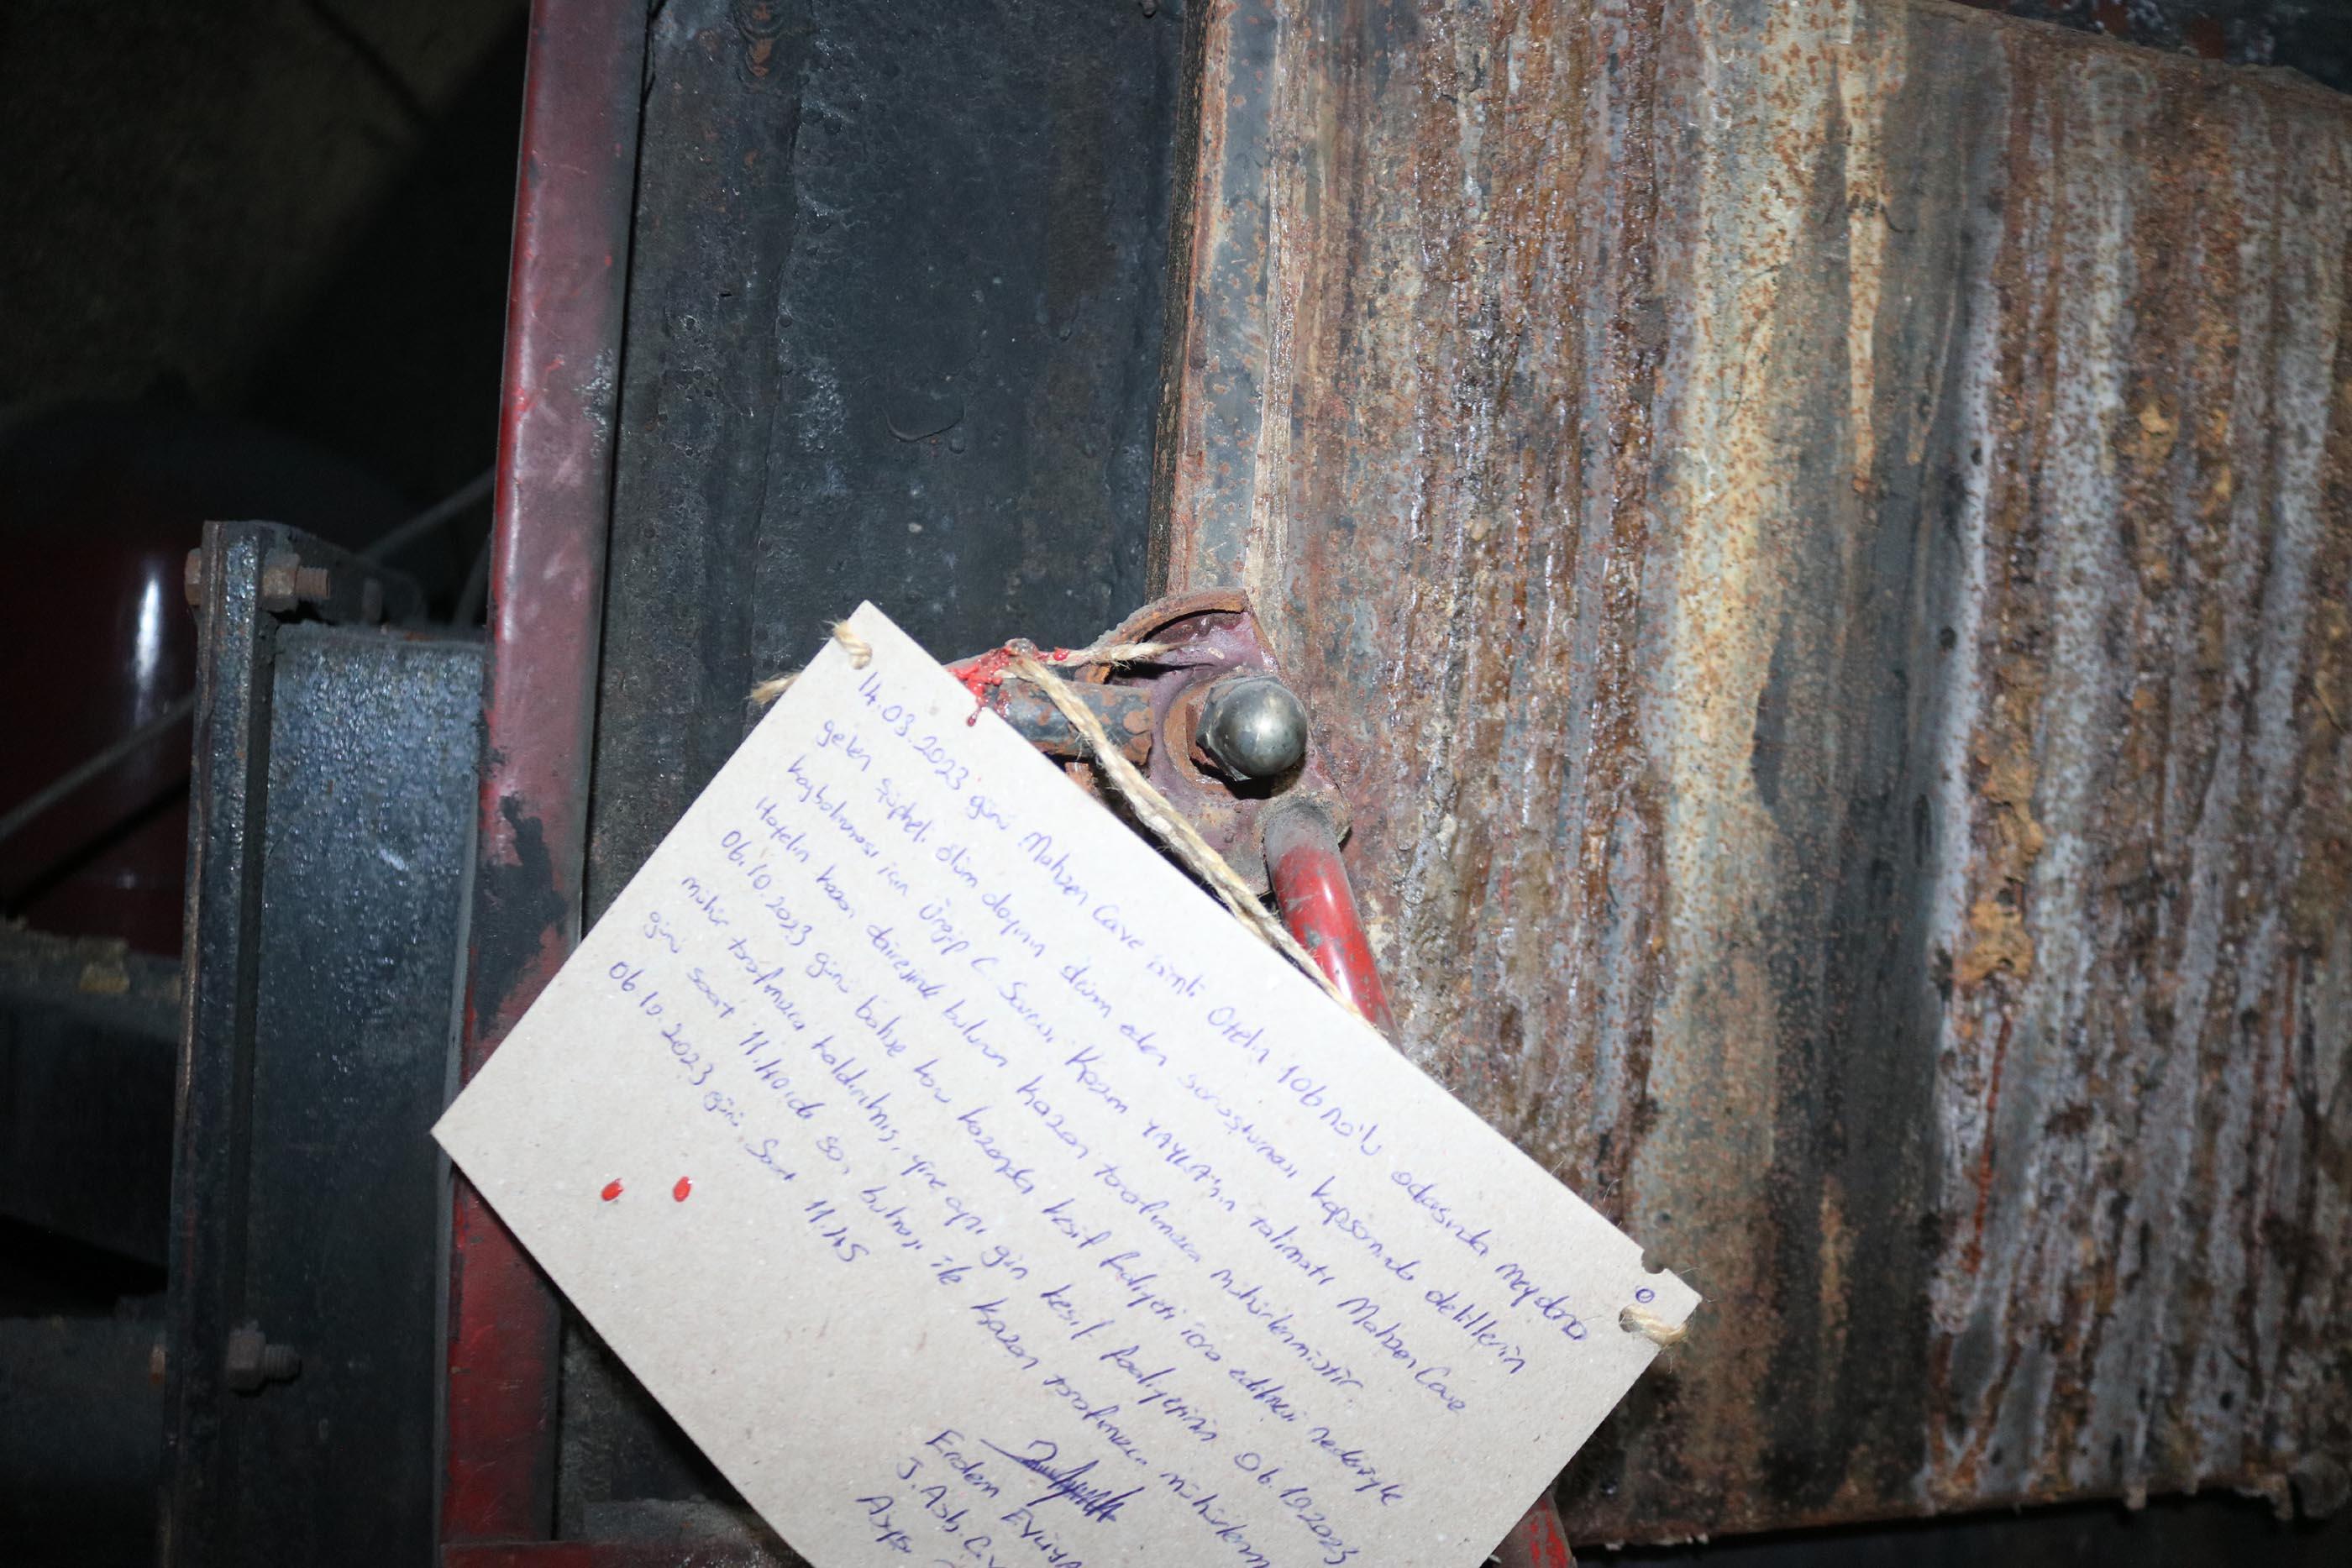 14.03.2023 günü Mahzen Cave isimli Otelin 106 no'lu odasında meydana
gelen şüpheli ölüm olayının devam eden soruşturması kapsamında delillerin
kaybolmaması için Ürgüp C. Savcısı Kazım YAYLA'nın talimatı Mahzen Cave
Hotelin kazan dairesinde bulunan kazan tarafımızca mühürlenmiştir
06.10.2023 günü bahse konu kazanda keşif faaliyeti icra edilmesi nedeniyle
mühür tarafımızca kaldırılmış, yine aynı gün keşif faaliyetinin 06.10.2023
günü saat 11.40 da son bulması ile kazan tarafımızca
06.10.2023 günü Saat 11.45
Erdem
J.Asb.